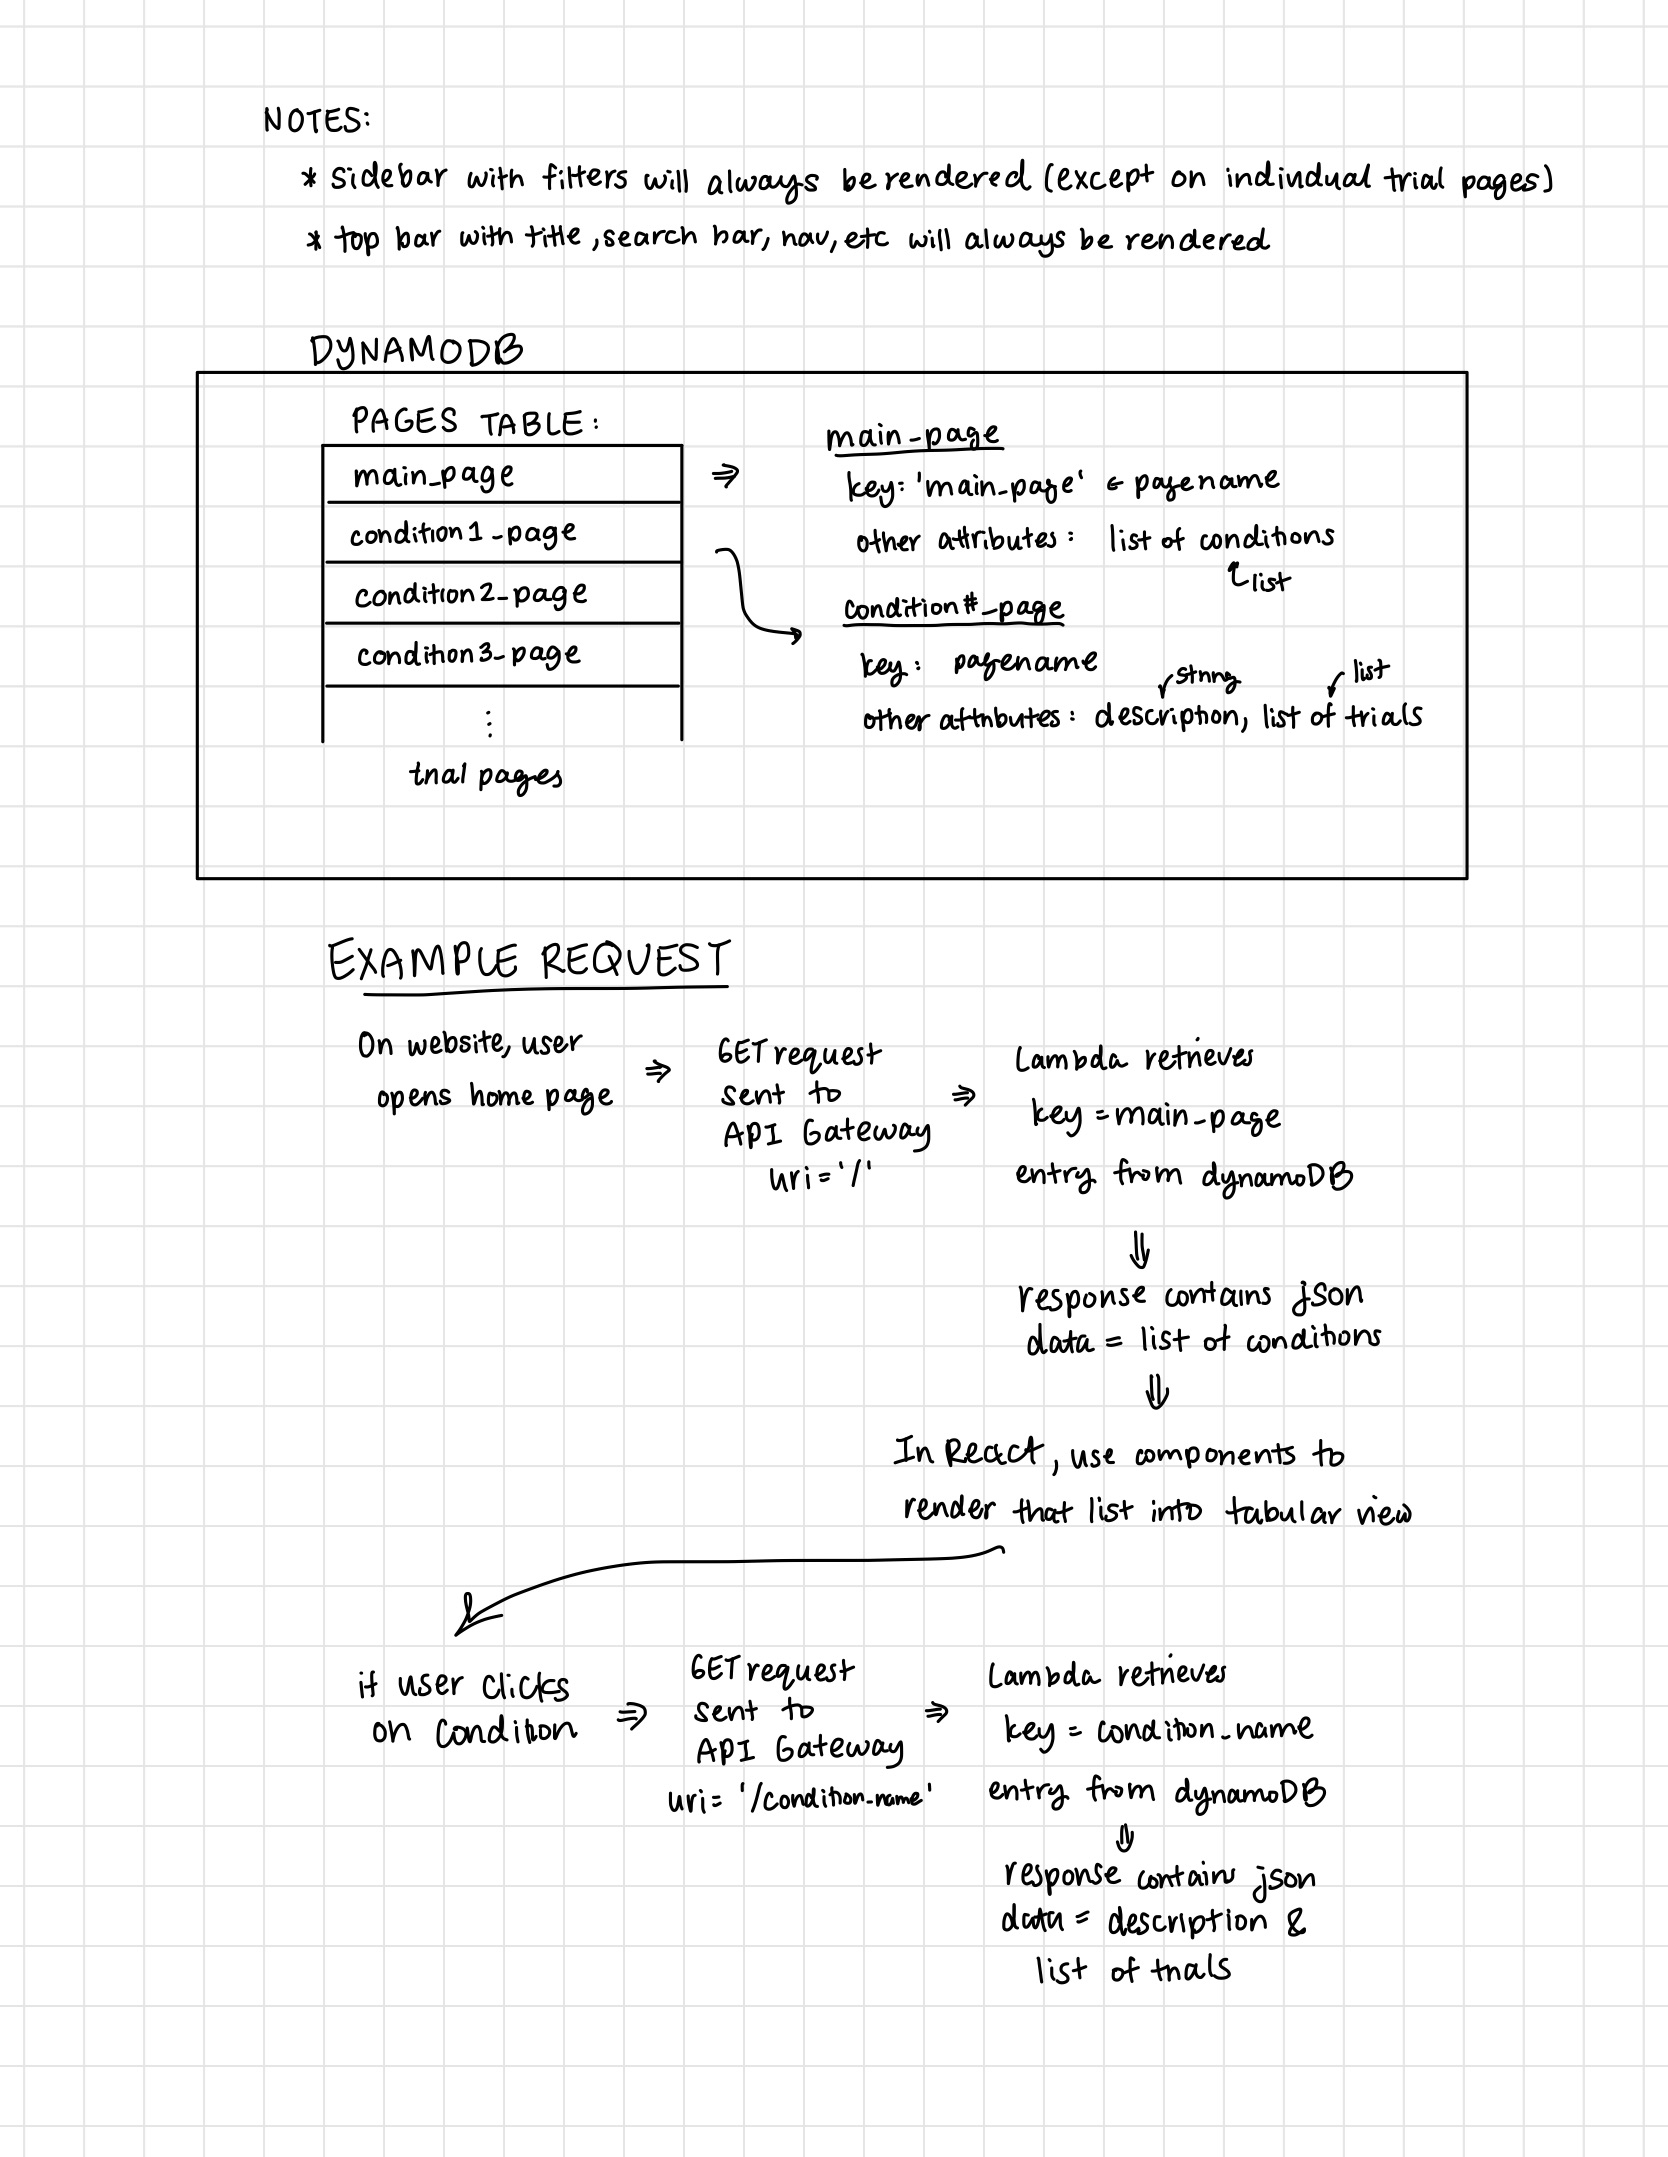 NOTES:
* sidebar with filters will always be rendered (except on individual trial pages)
* top bar with title, search bar, nav, etc will always be rendered
DYNAMODB
PAGES TABLE:
main_page
condition1_page
condition2_page
condition3_page
⋮
trial pages
⇒
main_page
key: 'main_page' ← pagename
other attributes: list of conditions
list
condition#_page
key: pagename
string
list
other attributes: description, list of trials
EXAMPLE REQUEST
On website, user
opens home page
⇒
GET request
sent to
API Gateway
uri = '/'
⇒
Lambda retrieves
key = main_page
entry from dynamoDB
⇓
response contains json
data = list of conditions
⇓
In React, use components to
render that list into tabular view
if user clicks
on condition
⇒
GET request
sent to
API Gateway
uri = '/condition_name'
⇒
Lambda retrieves
key = condition_name
entry from dynamoDB
⇓
response contains json
data = description &
list of trials